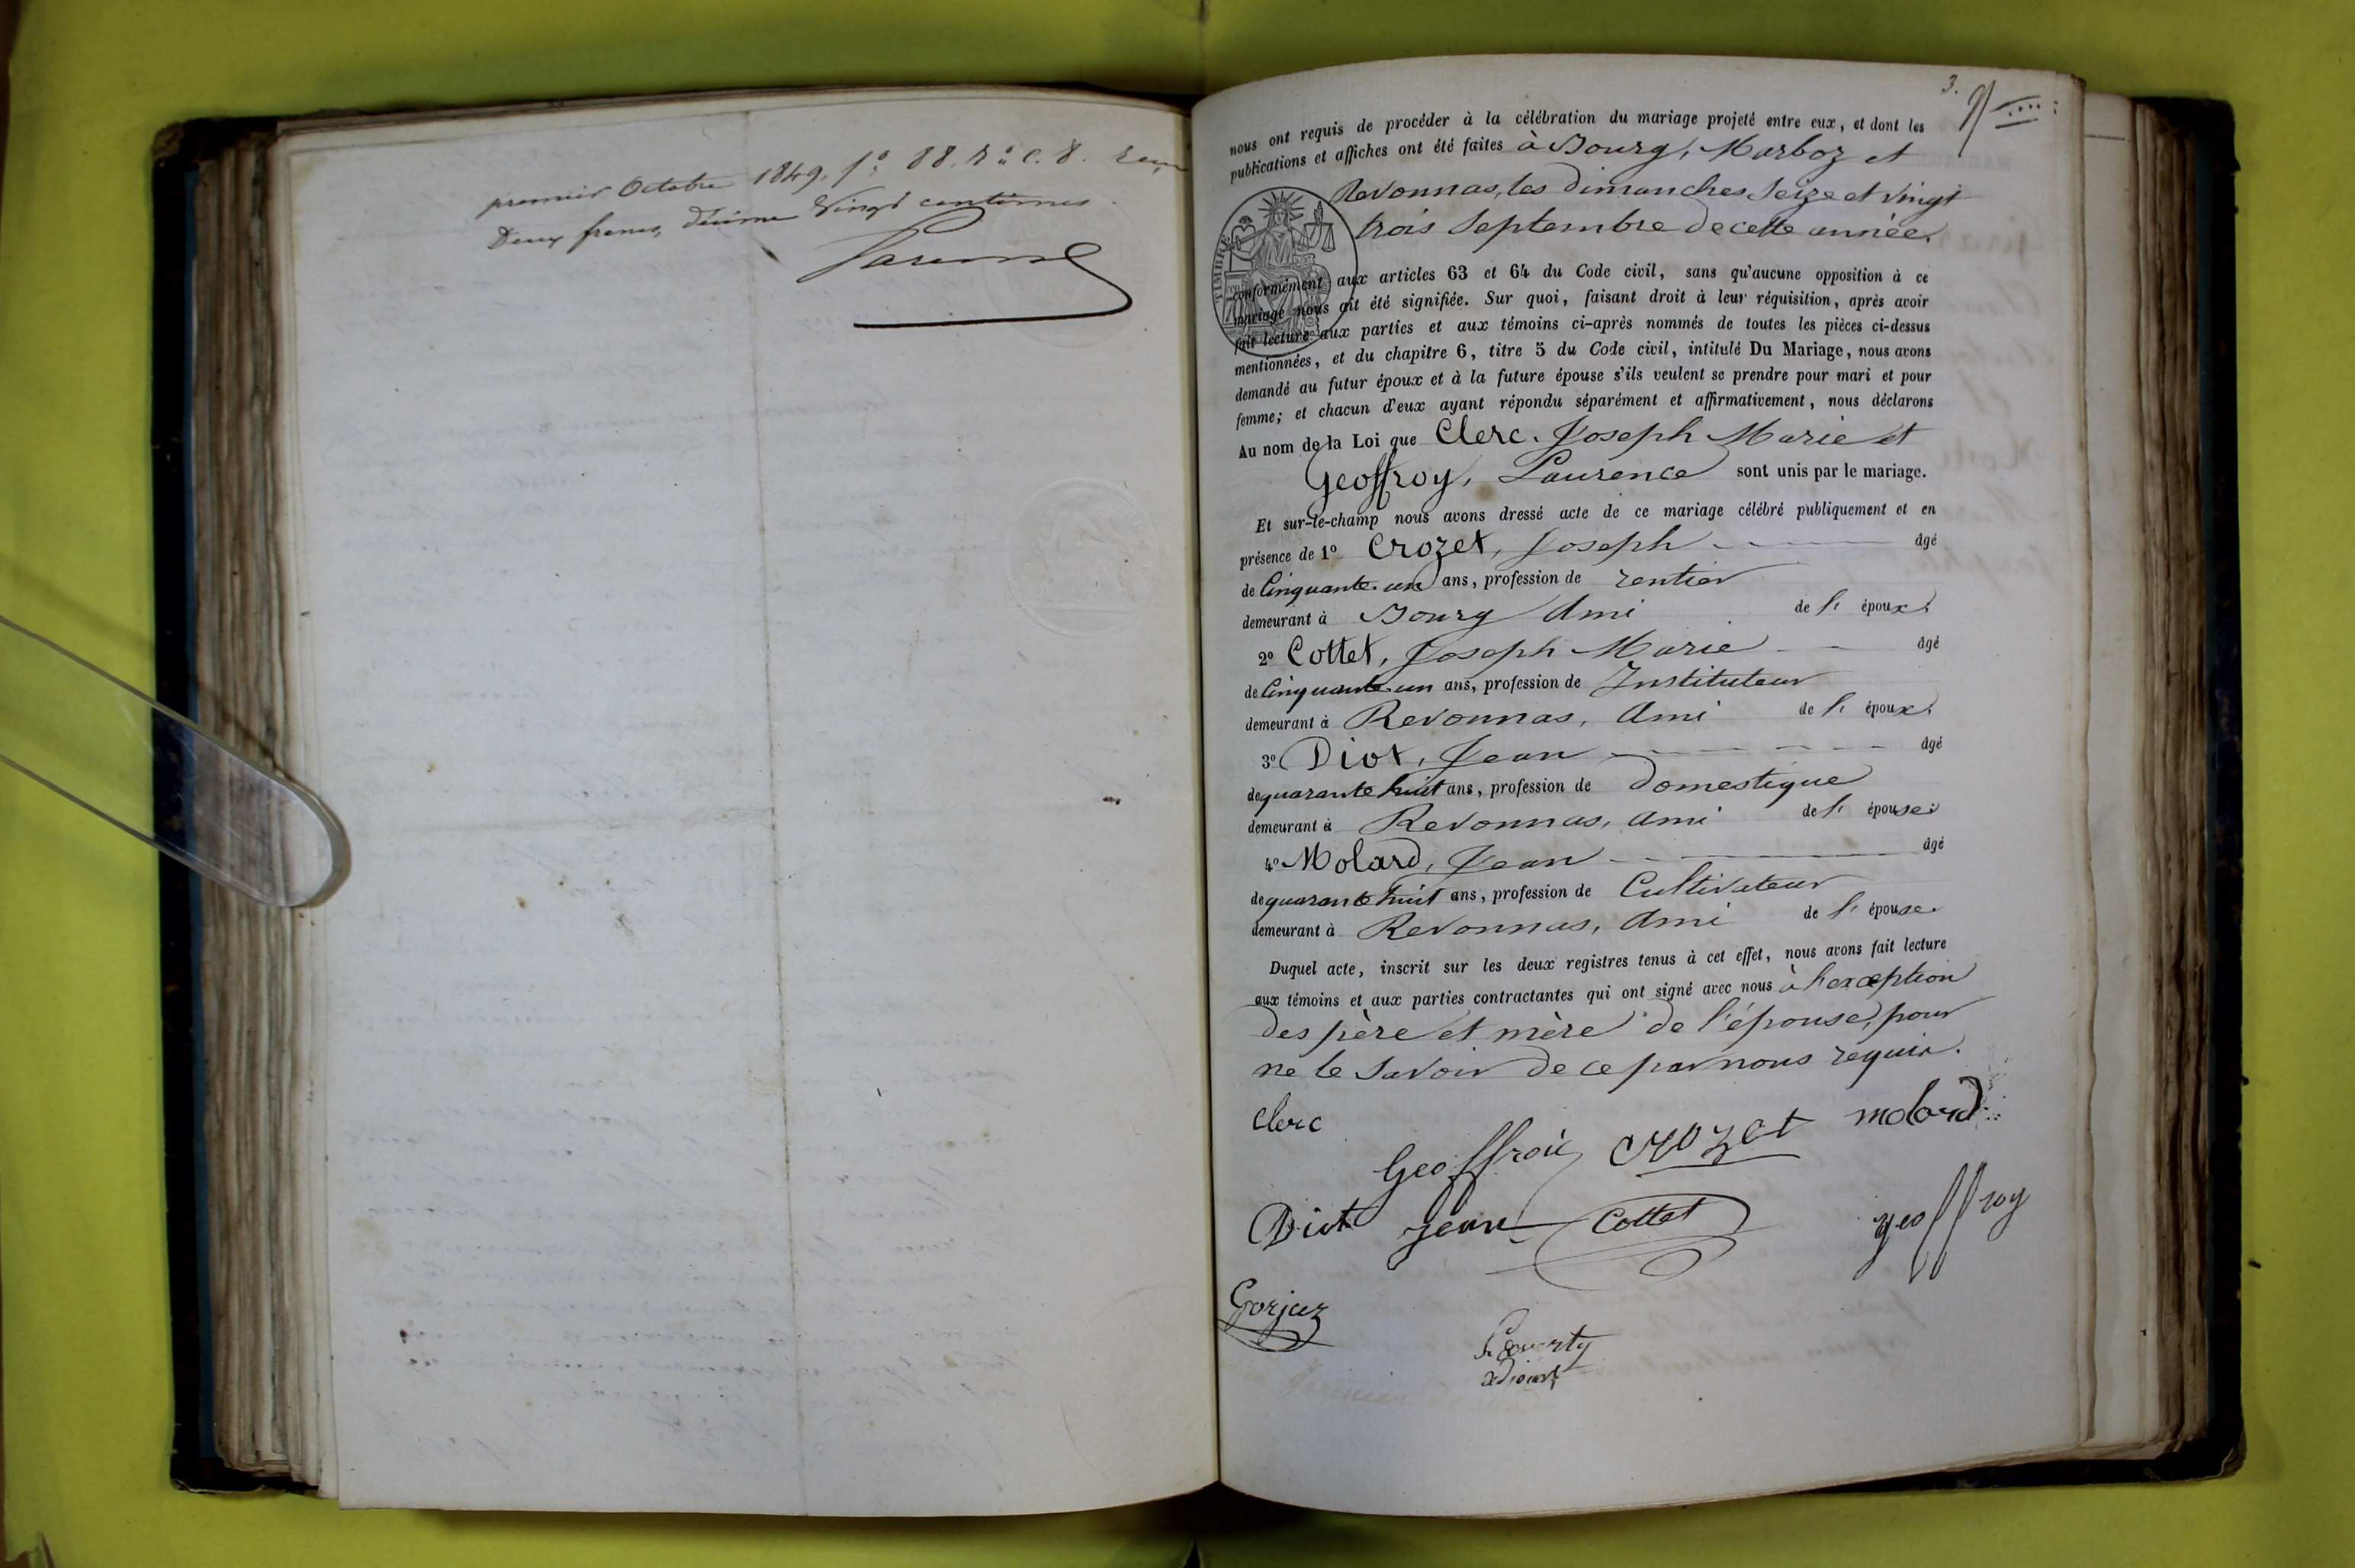 premier Octobre 1849, f° 88. R° c. 8. Reçu
Deux francs, décime Vingt centimes.
3.
nous ont requis de procéder à la célébration du mariage projeté entre eux, et dont les
publications et affiches ont été faites à Bourg, Marboz et
Revonnas, les dimanches Seize et Vingt
trois Septembre de cette année.
TIMBRE
conformément aux articles 63 et 64 du Code civil, sans qu'aucune opposition à ce
mariage nous ait été signifiée. Sur quoi, faisant droit à leur réquisition, après avoir
fait lecture aux parties et aux témoins ci-après nommés de toutes les pièces ci-dessus
mentionnées, et du chapitre 6, titre 5 du Code civil, intitulé Du Mariage, nous avons
demandé au futur époux et à la future épouse s'ils veulent se prendre pour mari et pour
femme; et chacun d'eux ayant répondu séparément et affirmativement, nous déclarons
Au nom de la Loi que Clerc, Joseph Marie et
Geoffroy, Laurence sont unis par le mariage.
Et sur-le-champ nous avons dressé acte de ce mariage célébré publiquement et en
présence de 1° Crozet, Joseph âgé
de Cinquante un ans, profession de rentier
demeurant à Bourg Ami de l' époux.
2° Cottet, Joseph Marie âgé
de Cinquante un ans, profession de Instituteur
demeurant à Revonnas, Ami de l' époux.
3° Diot, Jean âgé
de quarante huit ans, profession de domestique
demeurant à Revonnas, ami de l' épouse.
4° Molard, Jean âgé
de quarante huit ans, profession de Cultivateur
demeurant à Revonnas, Ami de l' épouse.
Duquel acte, inscrit sur les deux registres tenus à cet effet, nous avons fait lecture
aux témoins et aux parties contractantes qui ont signé avec nous à l'exception
des père et mère de l'épouse, pour
ne le Savoir de ce par nous requis.
Clerc
Geoffroi Crozet molard
Diot jean Cottet geoffroy
Gorjuz